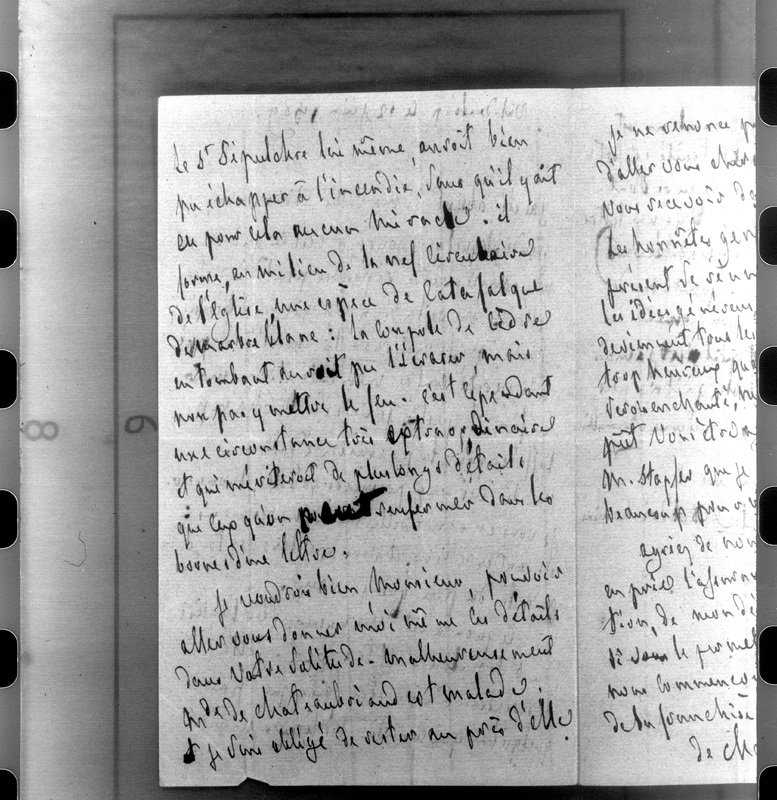 Le St Sépulchre lui même, auroit bien
pu échapper à l'incendie, sans qu'il y ait
eu pour cela aucun miracle. il
forme, au milieu de la nef circulaire
de l'Eglise, une espèce de Catafalque
de marbre blanc : la coupole de Cèdre
en tombant auroit pu l'écraser, mais
non pas y mettre le feu. c'est cependant
une circonstance très extraordinaire
et qui mériteroit de plus longs détails
que ceux qu'on renfermer dans les
bornes d'une lettre.
Je voudrois bien Monsieur, pouvoir
aller vous donner moi même ces détails
dans votre solitude. malheureusement
Mde de Chateaubriand est malade,
je suis obligé de rester au près d'elle.
je ne renonce
d'aller vous cher
vous recevoir
Les honnêtes gens
présent se réun
les idées généreus
deviennent tous les
trop heureux que
serois enchanté,
pût vous être
M. Stapfer que je
beaucoup pour
agréez de nou
en prie l'assuran
de mon
si le permet
nous commencer
de la franchise
de Cha